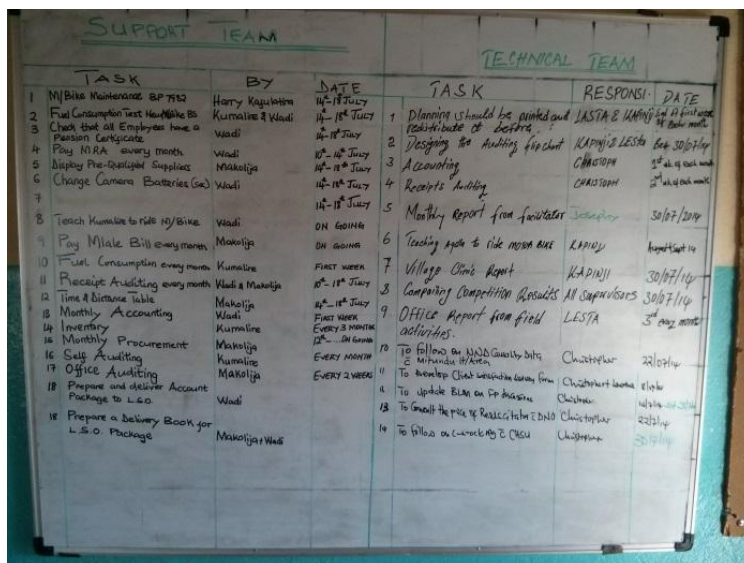 SUPPORT TEAM
TASK BY DATE
1 M/Bike Maintenance BP 7932 Harry Kagulatira 14th-18th JULY
2 Fuel Consumption Test New M/Bike Kumalire & Wadi 14th-18th JULY
3 Check that all Employees have a Pension Certificate Wadi 14-18th JULY
4 Pay MRA every month Wadi 10th-14th JULY
5 Display Pre-Qualified Suppliers Makolija 14th-18th JULY
6 Change Camera Batteries Wadi 14th-18th JULY
7 14th-18th JULY
8 Teach Kumalire to ride M/Bike Wadi ON GOING
9 Pay Mlale Bill every month Makolija ON GOING
10 Fuel Consumption every month Kumalire FIRST WEEK
11 Receipt Auditing every month Wadi & Makolija 10th-18th JULY
12 Time & Distance Table Makolija 14th-18th JULY
13 Monthly Accounting Wadi FIRST WEEK
14 Inventory Kumalire EVERY 3 MONTHS
16 Monthly Procurement Makolija 12th ON GOING
16 Self Auditing Kumalire EVERY MONTH
17 Office Auditing Makolija EVERY 2 WEEKS
18 Prepare and deliver Account
Package to L.S.O. Wadi
18 Prepare a Delivery Book for
L.S.O. Package Makolija + Wadi
TECHNICAL TEAM
TASK RESPONSI. DATE
1 Planning should be printed and LASTA & KAPINJI
redistribute it before
2 Designing the Auditing flipchart KAPINJI & LESTA 30/07/14
3 Accounting CHRISTOPH 1st wk of each month
4 Receipts Auditing CHRISTOPH 2nd wk of each month
5 Monthly Report from facilitator Josephy 30/07/2014
6 Teaching to ride motor BIKE KAPINJI August/Sept 14
7 Village Clinic Report KAPINJI 30/07/14
8 Comparing Competition Results All Supervisors 30/07/14
9 Office Report from field LESTA 3rd every month
activities.
10 To follow on NND Data Christopher 22/07/14
Mitundu H/Area
11 To develop Client satisfaction Survey form Christopher
12 To update on
13 To Consult the price of Resuscitator DNO Christopher 22/7/14
14 To follow on CHSU Christopher 30/7/14